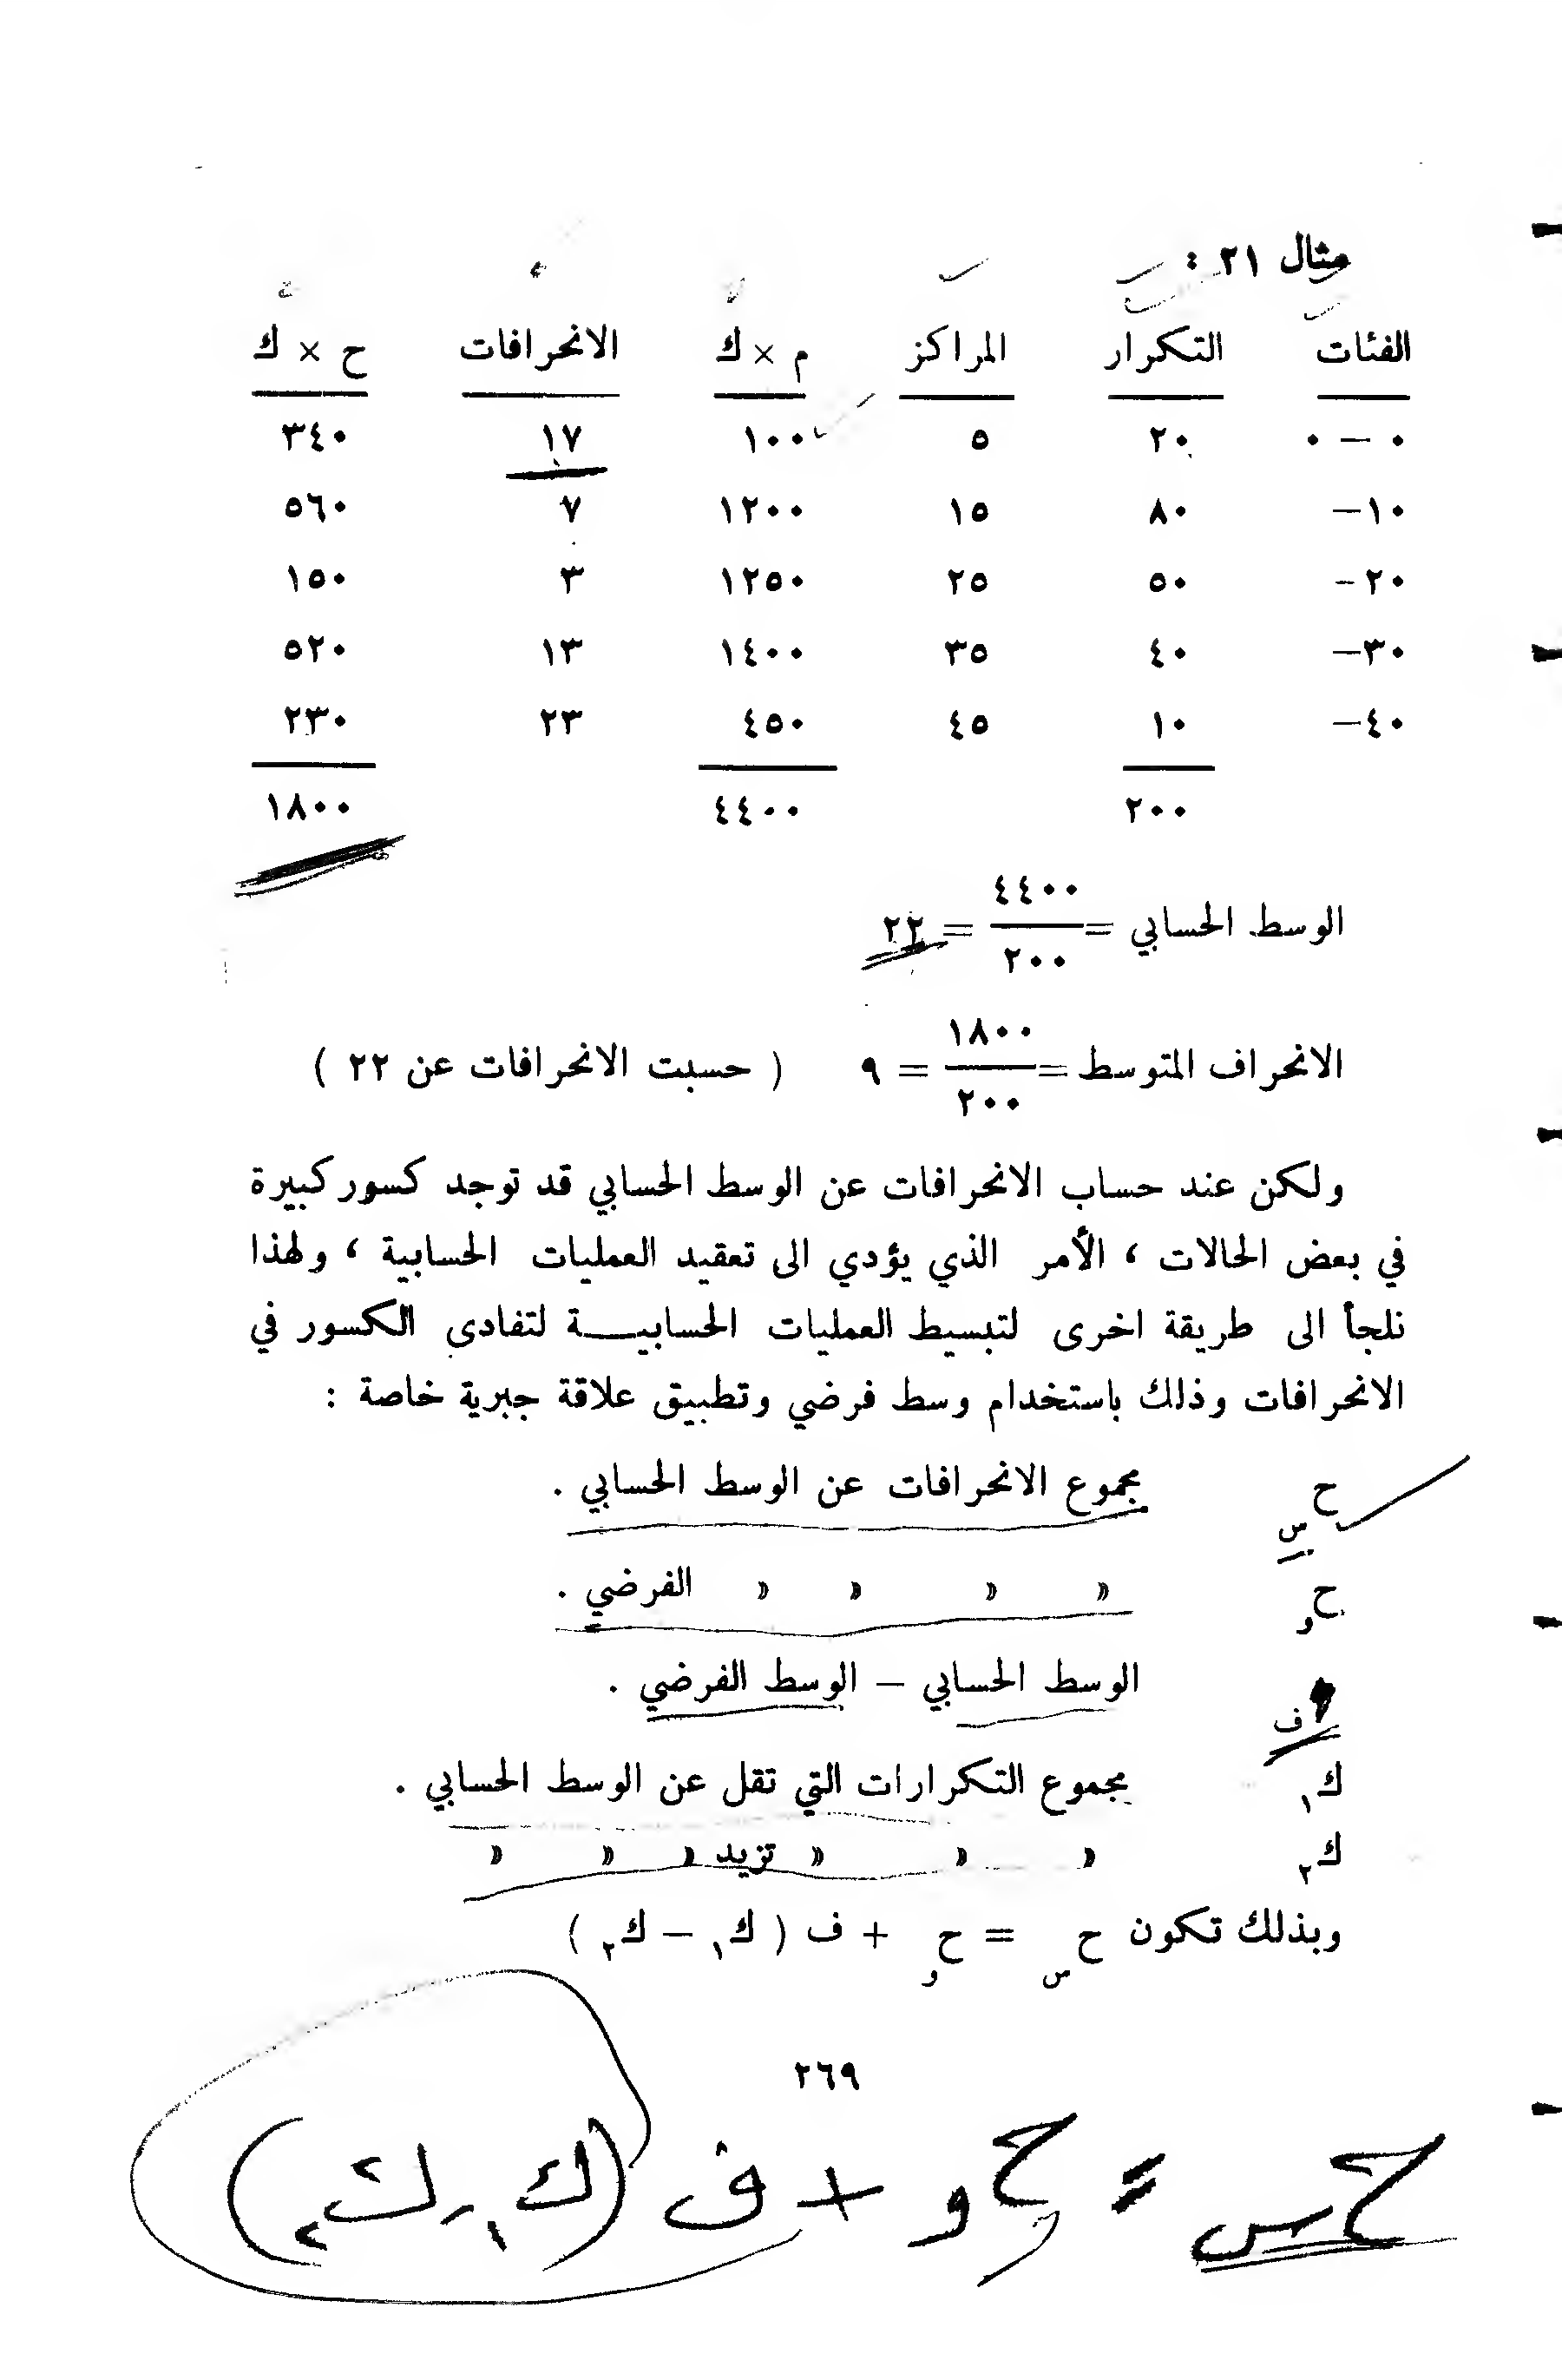 مثال ٢١ :
الفئات التكرار المراكز م × ك الانحرافات ح × ك
٠ — ٠ ٢٠ ٥ ١٠٠ ١٧ ٣٤٠
١٠— ٨٠ ١٥ ١٢٠٠ ٧ ٥٦٠
٢٠- ٥٠ ٢٥ ١٢٥٠ ٣ ١٥٠
٣٠— ٤٠ ٣٥ ١٤٠٠ ١٣ ٥٢٠
٤٠— ١٠ ٤٥ ٤٥٠ ٢٣ ٢٣٠
٢٠٠ ٤٤٠٠ ١٨٠٠
٤٤٠٠
الوسط الحسابي = = ٢٢
٢٠٠
١٨٠٠
الانحراف المتوسط = = ٩ ( حسبت الانحرافات عن ٢٢ )
٢٠٠
ولكن عند حساب الانحرافات عن الوسط الحسابي قد توجد كسور كبيرة
في بعض الحالات ، الأمر الذي يؤدي الى تعقيد العمليات الحسابية ، ولهذا
نلجأ الى طريقة اخرى لتبسيط العمليات الحسابيـــة لتفادى الكسور في
الانحرافات وذلك باستخدام وسط فرضي وتطبيق علاقة جبرية خاصة :
ح س مجموع الانحرافات عن الوسط الحسابي .
ح و » » » » الفرضي .
ف الوسط الحسابي — الوسط الفرضي .
ك١ مجموع التكرارات التي تقل عن الوسط الحسابي .
ك٢ » » » تزيد » » »
وبذلك تكون ح س = ح و + ف ( ك١ — ك٢ )
٢٦٩
ح س = ح و + ف (ك١ - ك٢)